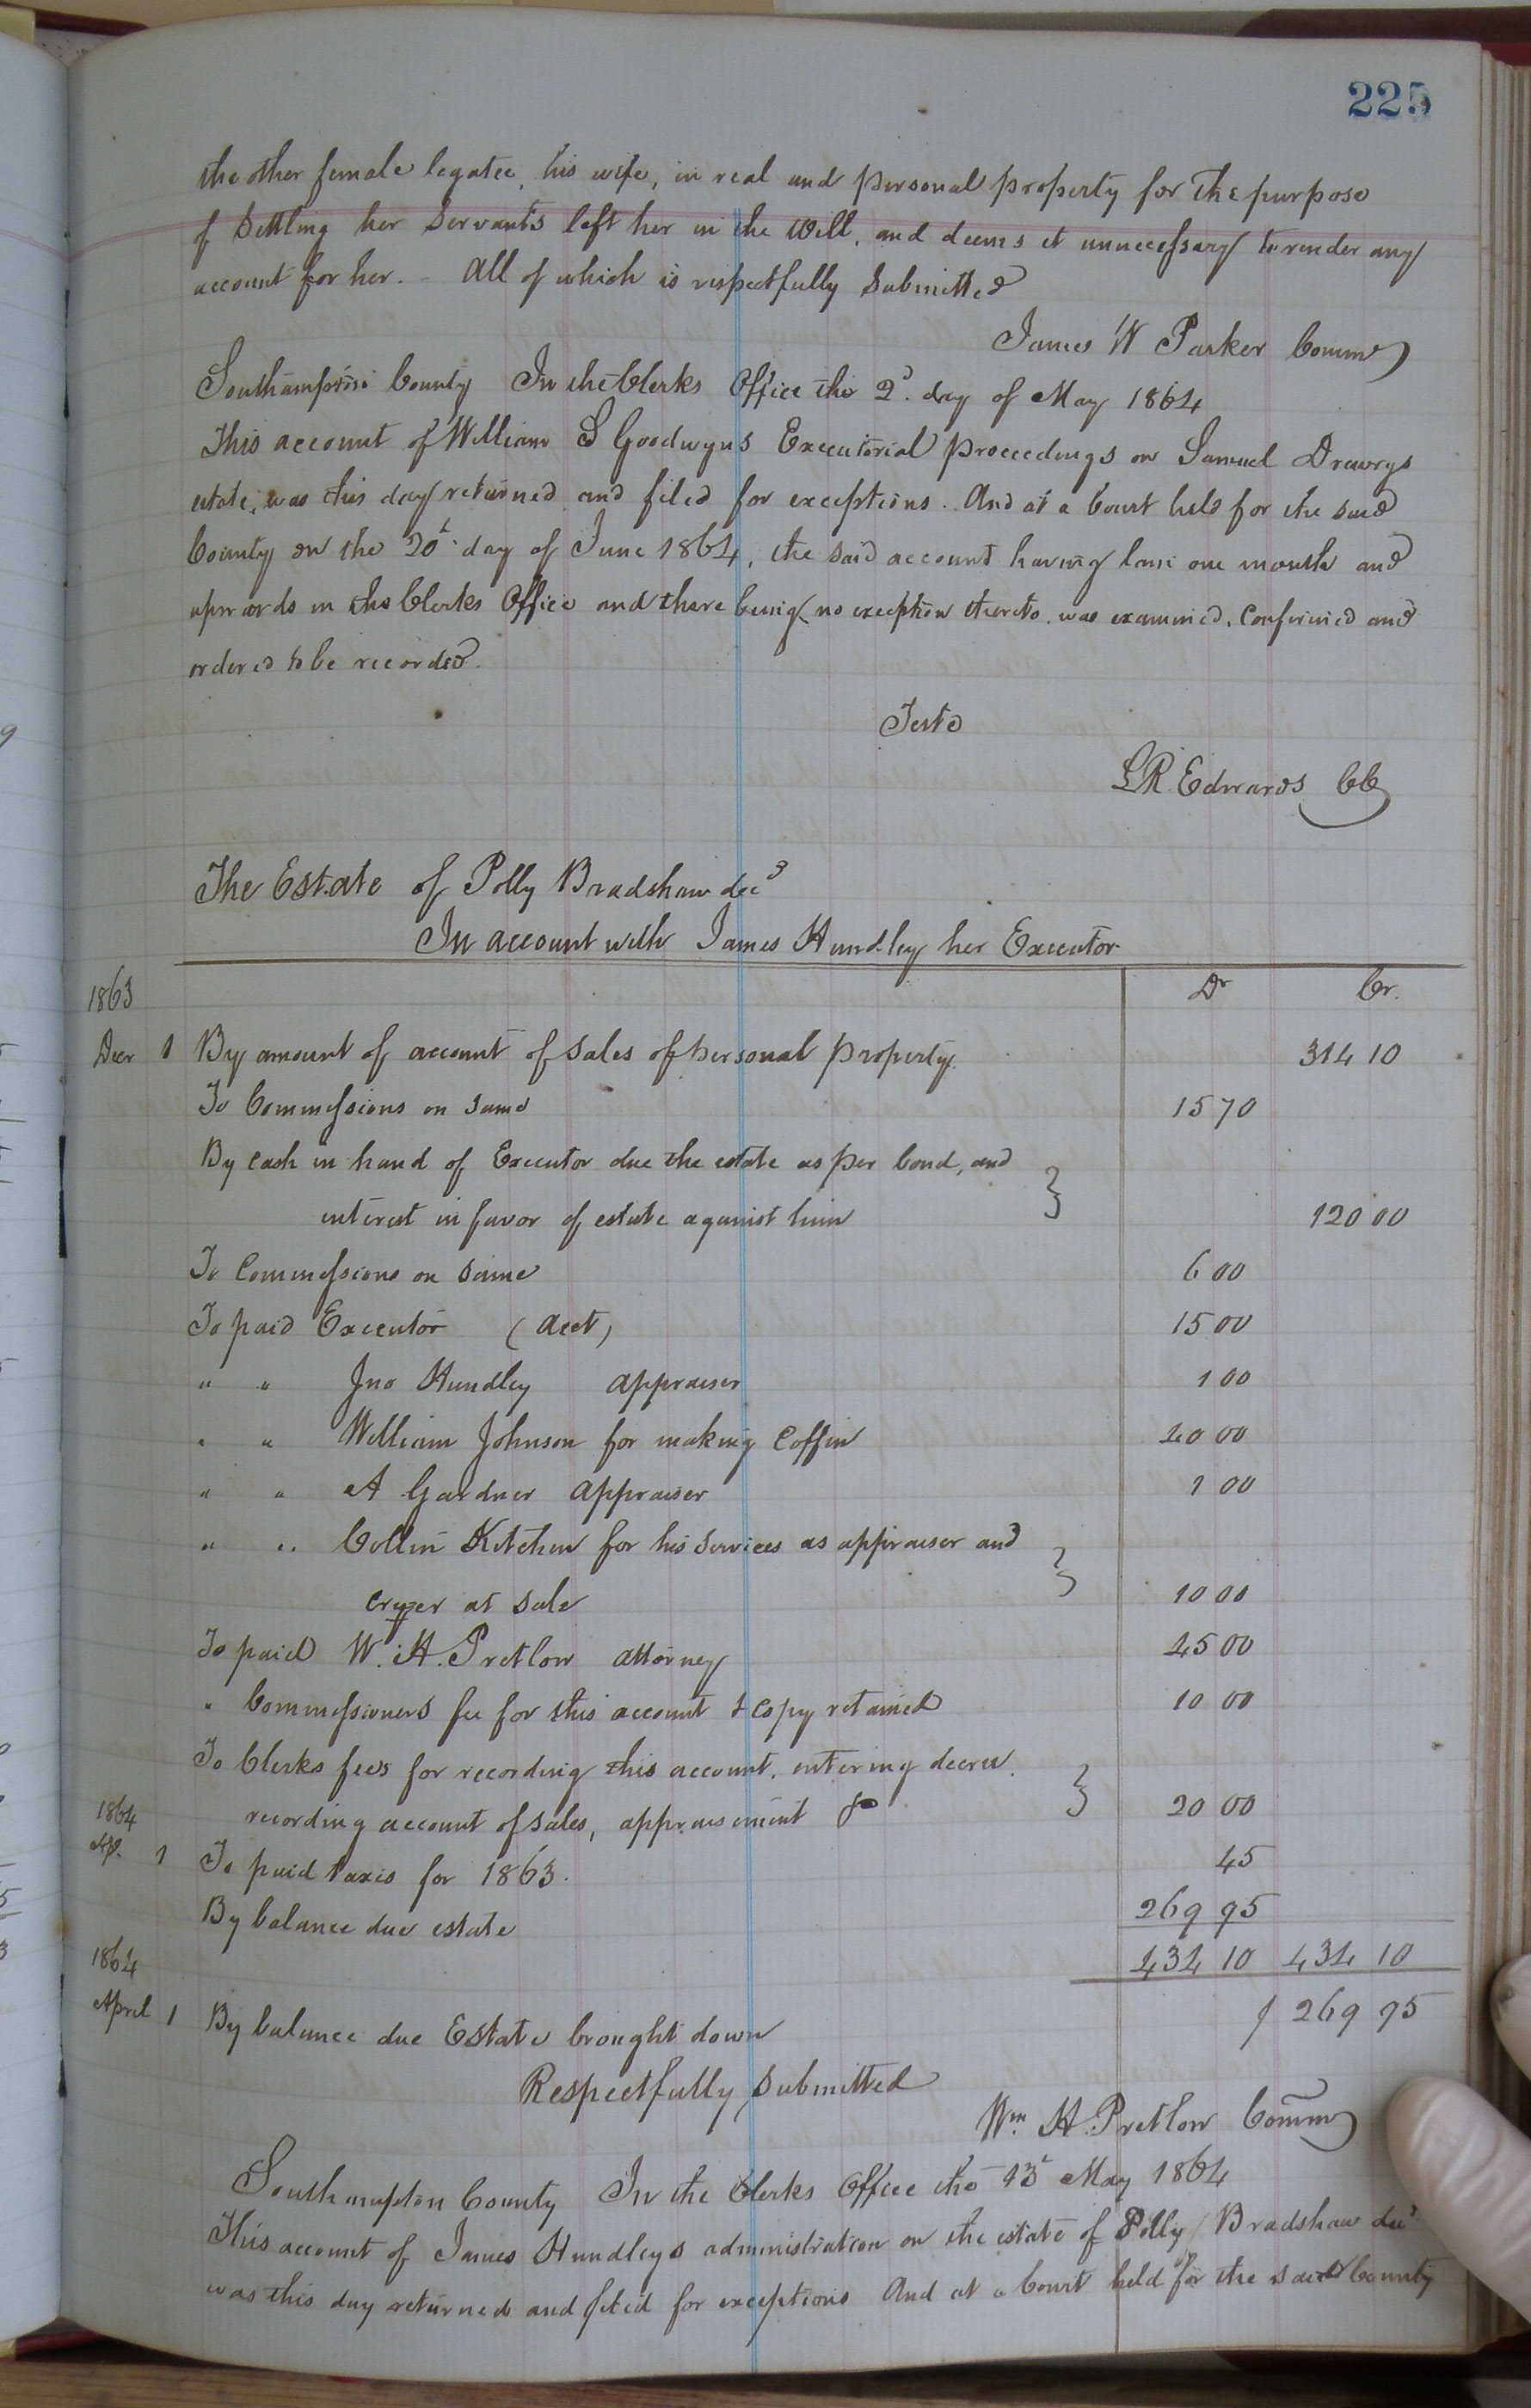 225
the other female legatee, his wife, in real and personal property for the purpose
of settling her servants left her in the Will, and deems it unnecessary to render any
account for her. - All of which is respectfully submitted
James W Parker Commr
Southampton County In the Clerks Office the 2d. day of May 1864
This account of William S Goodwyns Executorial proceedings on Samuel Drewrys
estate, was this day returned and filed for exceptions. And at a Court held for the said
County on the 20t. day of June 1864, the said account having lain one month and
upwards in the Clerks Office and there being no exception thereto, was examined, confirmed and
ordered to be recorded.
Teste
L R Edwards CC
The Estate of Polly Bradshaw decd
In account with James Hundley her Executor
1863 Dr Cr.
Decr 1 By amount of account of sales of personal property. 314 10
To Commissions on same 15 70
By cash in hand of Executor due the estate as per bond, and
interest in favor of estate against him } 120 00
To Commissions on same 6 00
To paid Executor (acct) 15 00
" " Jno Hundley appraiser 1 00
" " William Johnson for making Coffin 20 00
" " A Gardner appraiser 1 00
" " Collin Kitchen for his services as appraiser and
cryer at sale } 10 00
To paid W. H. Pretlow attorney 45 00
" Commissioners fee for this account & copy retained 10 00
To Clerks fees for recording this account, entering decree,
1864 recording account of sales, appraisement & } 20 00
Ap. 1 To paid taxes for 1863. 45
By balance due estate 269 95
434 10 434 10
1864
April 1 By balance due Estate brought down 269 95
Respectfully submitted
Wm. H. Pretlow Comm
Southampton County In the Clerks Office the 13t May 1864
This account of James Hundleys administration on the estate of Polly Bradshaw decd
was this day returned and filed for exceptions And at a Court held for the said County